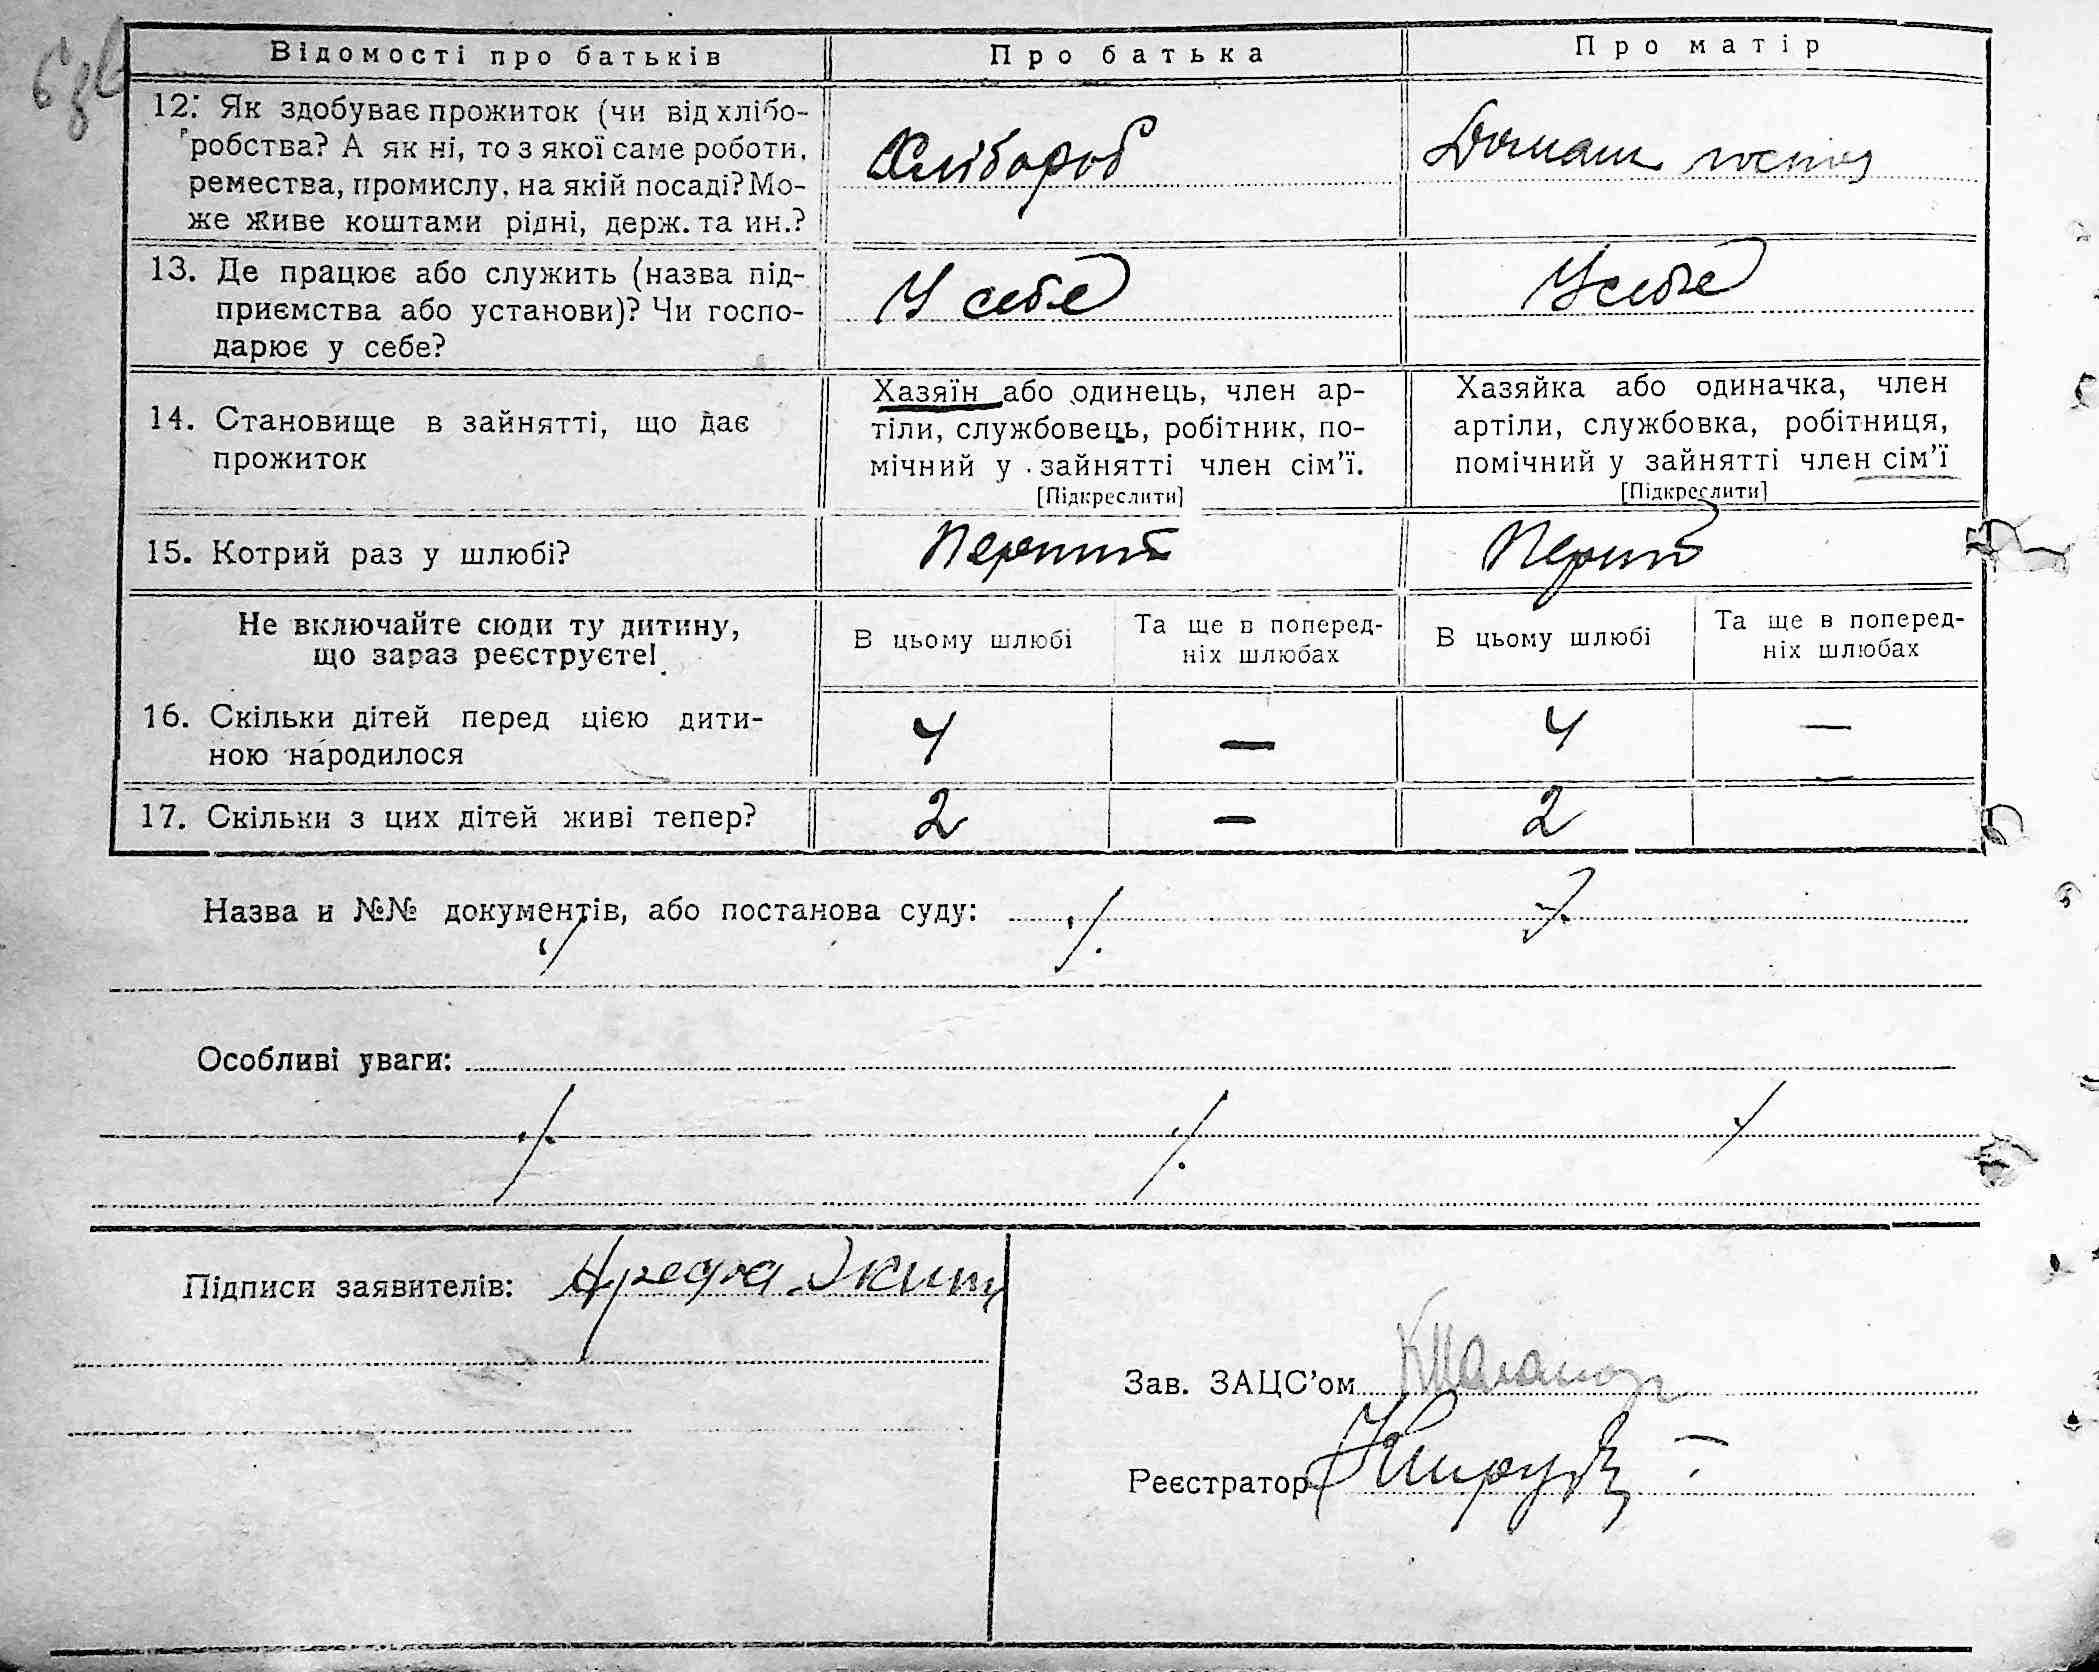 Відомості про батьків Про батька Про матір
12. Як здобуває прожиток (чи від хлібо-
робства? А як ні, то з якої саме роботи,
ремества, промислу, на якій посаді? Мо-
же живе коштами рідні, держ. та ин.?
Хлібороб
Домаш господ
13. Де працює або служить (назва під-
приємства або установи)? Чи госпо-
дарює у себе?
У себе
У себе
14. Становище в зайнятті, що дає
прожиток
Хазяїн або одинець, член ар-
тіли, службовець, робітник, по-
мічний у зайнятті член сім'ї.
[Підкреслити]
Хазяйка або одиначка, член
артіли, службовка, робітниця,
помічний у зайнятті член сім'ї
[Підкреслити]
15. Котрий раз у шлюбі?
Перший
Перший
Не включайте сюди ту дитину,
що зараз реєструєте!
В цьому шлюбі
Та ще в поперед-
ніх шлюбах
В цьому шлюбі
Та ще в поперед-
ніх шлюбах
16. Скільки дітей перед цією дити-
ною народилося
4 — 4 —
17. Скільки з цих дітей живі тепер?
2 — 2
Назва и №№ документів, або постанова суду:
Особливі уваги:
Підписи заявителів:
Зав. ЗАЦС'ом
Реєстратор